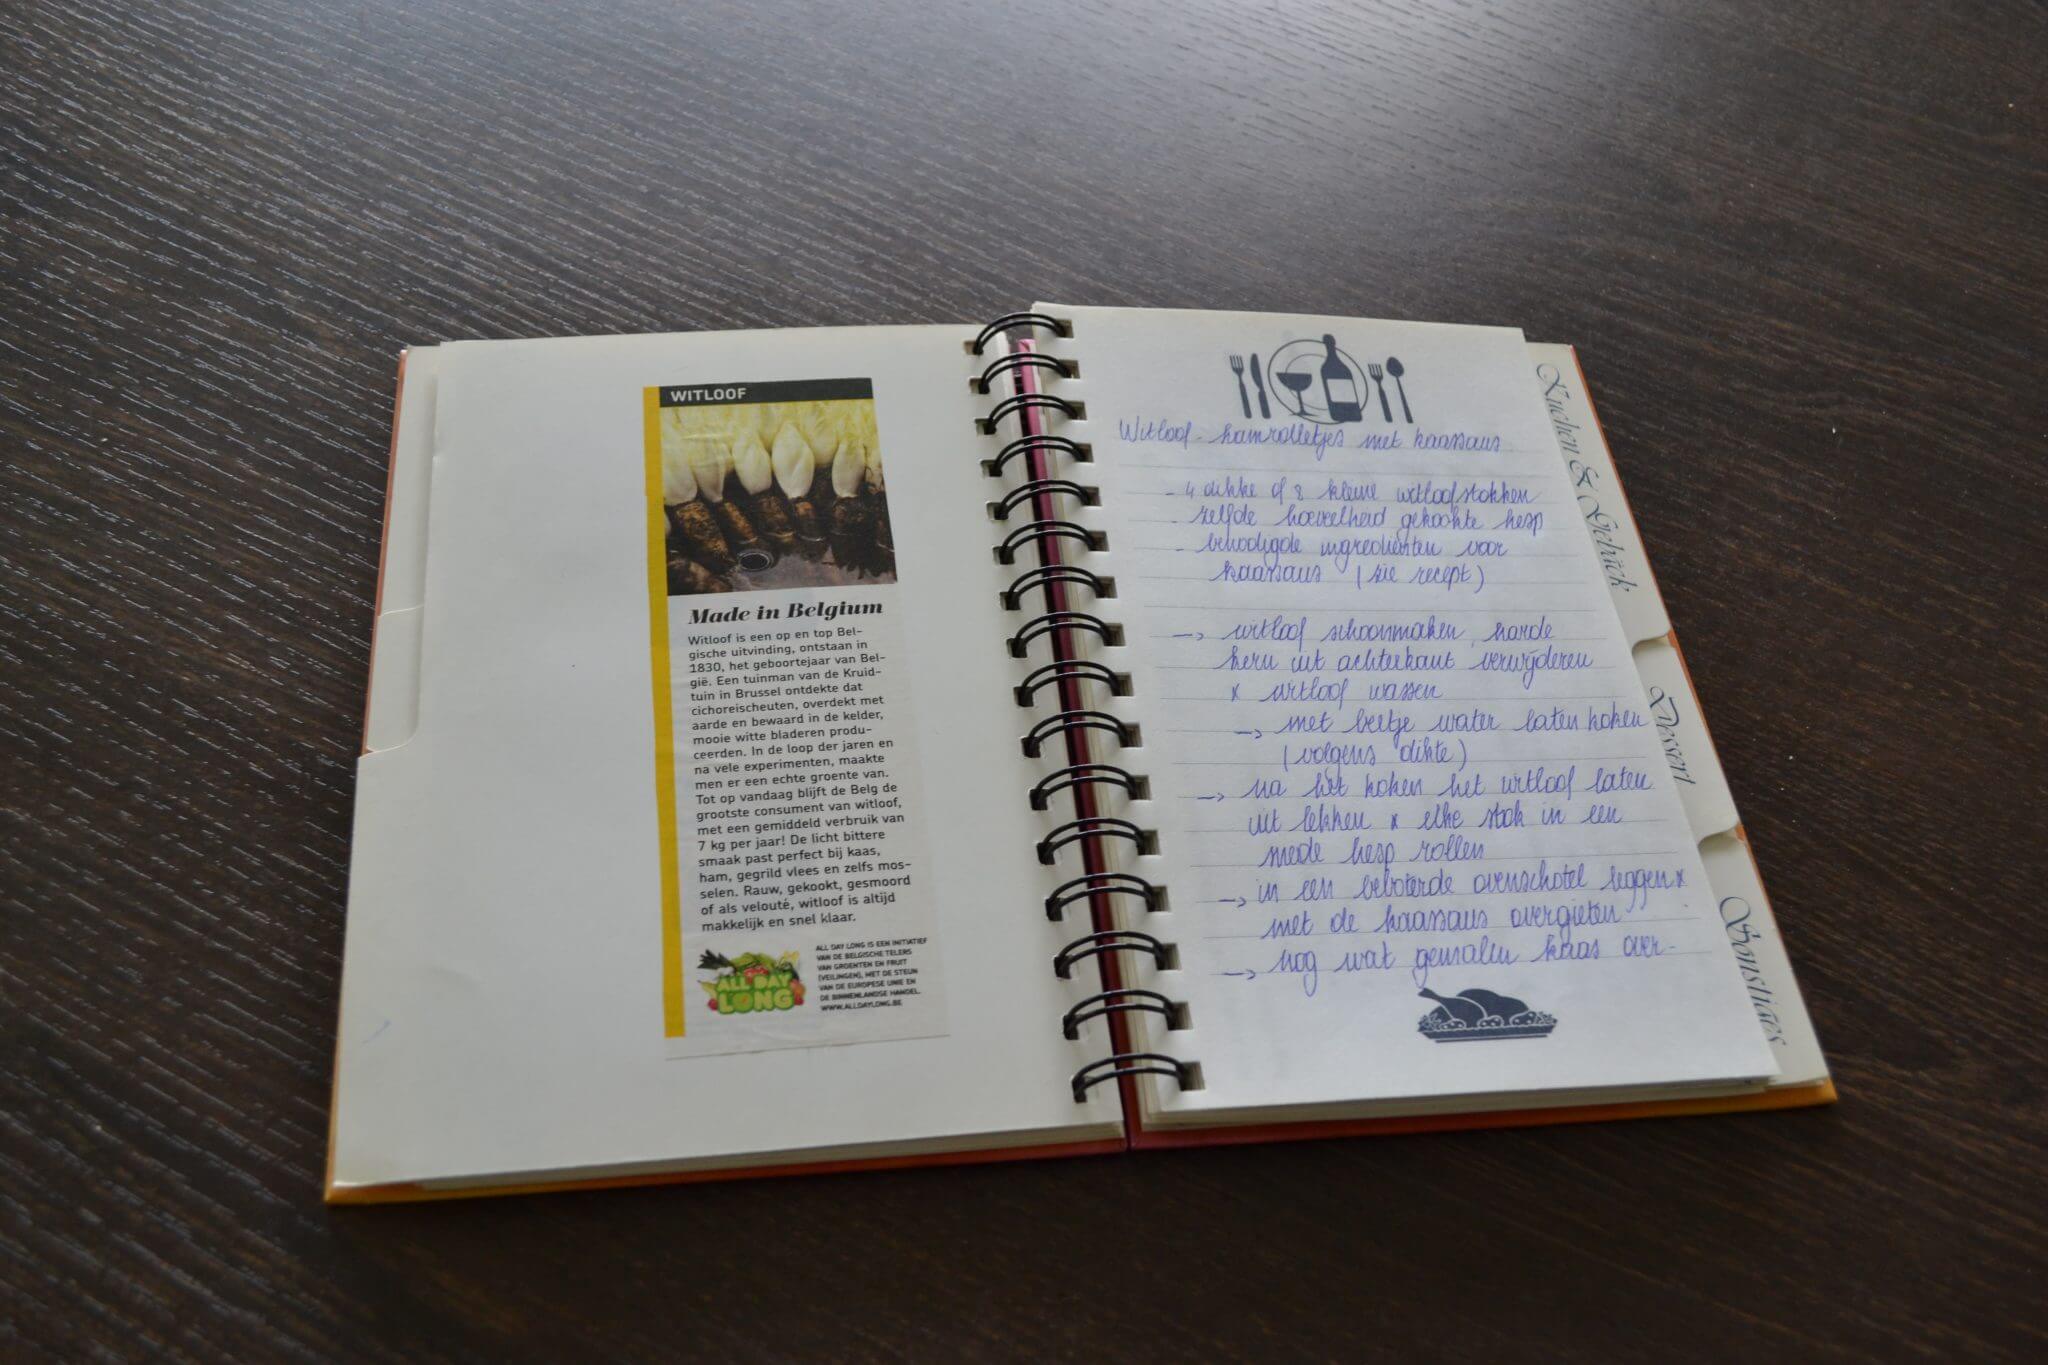 WITLOOF
Made in Belgium
Witloof is een op en top Bel-
gische uitvinding, ontstaan in
1830, het geboortejaar van Bel-
gië. Een tuinman van de Kruid-
tuin in Brussel ontdekte dat
cichoreischeuten, overdekt met
aarde en bewaard in de kelder,
mooie witte bladeren produ-
ceerden. In de loop der jaren en
na vele experimenten, maakte
men er een echte groente van.
Tot op vandaag blijft de Belg de
grootste consument van witloof,
met een gemiddeld verbruik van
7 kg per jaar! De licht bittere
smaak past perfect bij kaas,
ham, gegrild vlees en zelfs mos-
selen. Rauw, gekookt, gesmoord
of als velouté, witloof is altijd
makkelijk en snel klaar.
ALL DAY
LONG
ALL DAY LONG IS EEN INITIATIEF
VAN DE BELGISCHE TELERS
VAN GROENTEN EN FRUIT
(VEILINGEN), MET DE STEUN
VAN DE EUROPESE UNIE EN
DE BINNENLANDSE HANDEL.
WWW.ALLDAYLONG.BE
Witloof-hamrolletjes met kaassaus
- 4 dikke of 8 kleine witloofstokken
- zelfde hoeveelheid gekookte hesp
- benodigde ingredienten voor
kaassaus (zie recept)
-> witloof schoonmaken, harde
kern uit achterkant verwijderen
x witloof wassen
-> met beetje water laten koken
(volgens dikte)
-> na het koken het witloof laten
uit lekken x elke stok in een
snede hesp rollen
-> in een beboterde ovenschotel leggen x
met de kaassaus overgieten
-> nog wat gemalen kaas over-
Kuchen & Gebäck
Dessert
Sonstiges